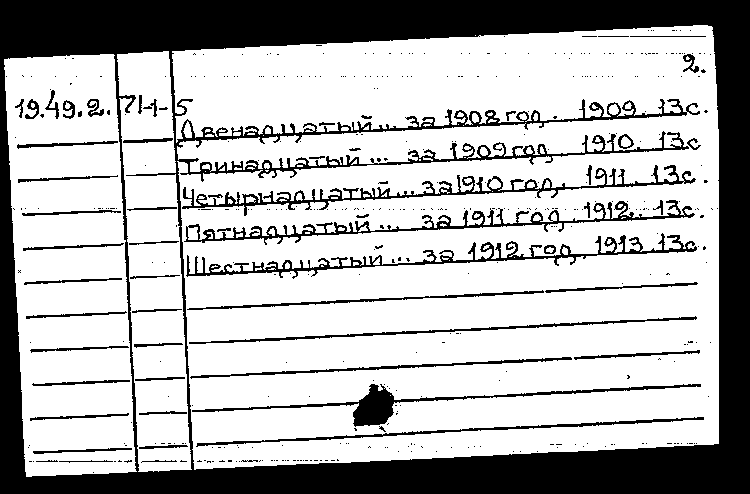 2.
19.49.2. 71-1-5
Двенадцатый... за 1908 год. 1909. 13с.
Тринадцатый... за 1909 год 1910. 13с
Четырнадцатый... за 1910 год. 1911. 13с.
Пятнадцатый... за 1911 год 1912. 13с.
Шестнадцатый... за 1912 год 1913. 13с.